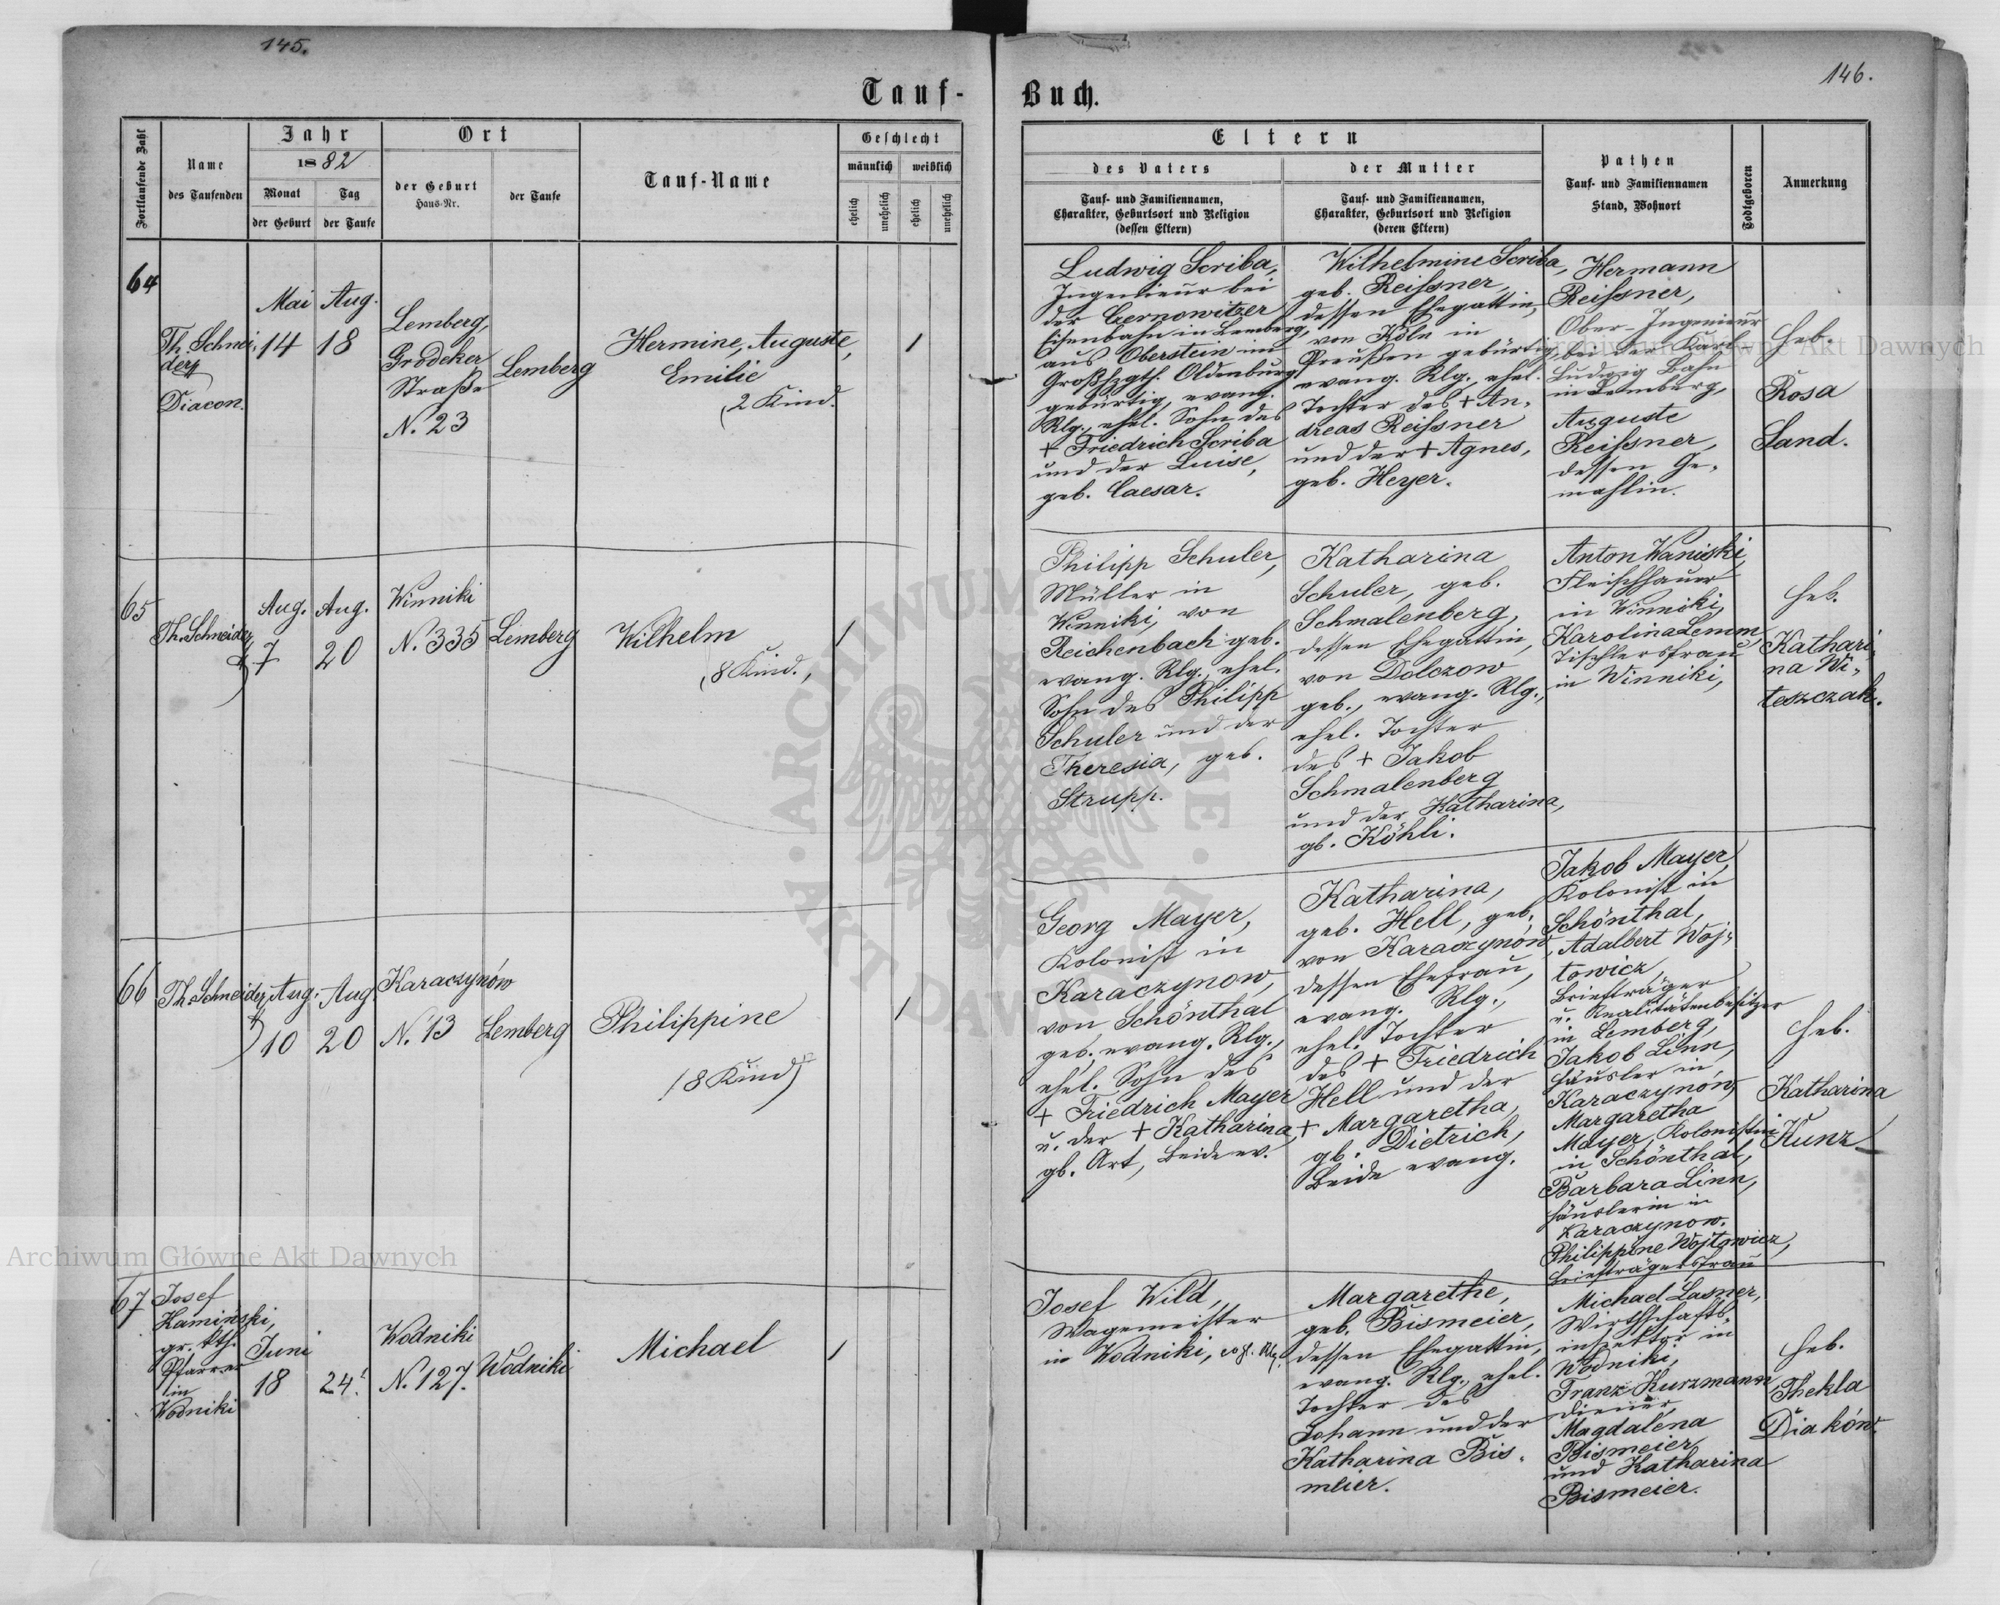 145.
146.
Tauf-
Buch.
Fortlaufende Zahl
Name
des Taufenden
Jahr
1882
Monat
der Geburt
Tag
der Taufe
Ort
der Geburt
Haus-Nr.
der Taufe
Tauf-Name
Geschlecht
männlich
weiblich
ehelich
unehelich
ehelich
unehelich
Eltern
des Vaters
Tauf- und Familiennamen,
Charakter, Geburtsort und Religion
(dessen Eltern)
der Mutter
Tauf- und Familiennamen,
Charakter, Geburtsort und Religion
(deren Eltern)
Pathen
Tauf- und Familiennamen
Stand, Wohnort
Todtgeboren
Anmerkung
64
Th. Schnei-
der
Diacon.
Mai
14
Aug.
18
Lemberg,
Grodeker
Straße
N. 23
Lemberg
Hermine, Auguste,
Emilie
(2 Kind.
1
Ludwig Scriba,
Ingenieur bei
der Cernowitzer
Eisenbahn in Lemberg,
aus Oberstein im
Großhzgth. Oldenburg
gebürtig, evang.
Rlg., ehel. Sohn des
+ Friedrich Scriba
und der Luise,
geb. Caesar.
Wilhelmine Scriba,
geb. Reissner,
dessen Ehegattin,
von Köln in
Preußen gebürtig,
evang. Rlg., ehel.
Tochter des + An-
dreas Reissner
und der + Agnes,
geb. Heyer.
Hermann
Reissner,
Ober-Ingenieur
bei der Karl
Ludwig Bahn
in Lemberg,
Auguste
Reissner,
dessen Ge-
mahlin.
Heb.
Rosa
Sand.
65
Th. Schneider
Aug.
7
Aug.
20
Winniki
N. 335
Lemberg
Wilhelm
(8 Kind.,
1
Philipp Schuler,
Müller in
Winniki, von
Reichenbach geb.
evang. Rlg., ehel.
Sohn des Philipp
Schuler und der
Theresia, geb.
Strupp.
Katharina
Schuler, geb.
Schmalenberg,
dessen Ehegattin,
von Dolczow
geb., evang. Rlg.,
ehel. Tochter
des + Jakob
Schmalenberg
und der Katharina,
gb. Köhli.
Anton Waniski,
Fleischhauer
in Winniki,
Karolina Lemm,
Tischlersfrau
in Winniki,
Heb.
Kathari-
na Wi-
teszczak.
66
Th. Schneider
Aug.
10
Aug.
20
Karaczynów
N. 13
Lemberg
Philippine
(8 Kind)
1
Georg Mayer,
Kolonist in
Karaczynow,
von Schönthal
geb. evang. Rlg.,
ehel. Sohn des
+ Friedrich Mayer
u. der + Katharina,
gb. Art, beide ev.
Katharina,
geb. Hell, geb.
von Karaczynów,
dessen Ehefrau,
evang. Rlg.,
ehel. Tochter
des + Friedrich
Hell und der
+ Margaretha,
gb. Dietrich,
beide evang.
Jakob Mayer,
Kolonist in
Schönthal,
Adalbert Woj-
towicz,
Briefträger
u. Realitätenbesitzer
in Lemberg,
Jakob Linn,
Häusler in
Karaczynów,
Margaretha
Mayer, Kolonistin
in Schönthal,
Barbara Linn,
Häuslerin in
Karaczynow.
Philippine Wojtowicz,
Briefträgersfrau
Heb.
Katharina
Kunz
67
Josef
Kamiński,
gr. kth.
Pfarrer
in
Wodniki
Juni
18
24.
Wodniki
N. 127.
Wodniki
Michael
1
Josef Wild,
Wagemeister
in Wodniki,
Margarethe,
geb. Bismeier,
dessen Ehegattin,
evang. Rlg., ehel.
Tochter des
Johann und der
Katharina Bis-
meier.
Michael Lasner,
Wirthschafts-
inspektor in
Wodniki,
Franz Kurzmann
Diener,
Magdalena
Bismeier
und Katharina
Bismeier.
Heb.
Thekla
Diaków.
Archiwum Główne Akt Dawnych
Archiwum Główne Akt Dawnych
ARCHIWUM GŁÓWNE AKT DAWNYCH